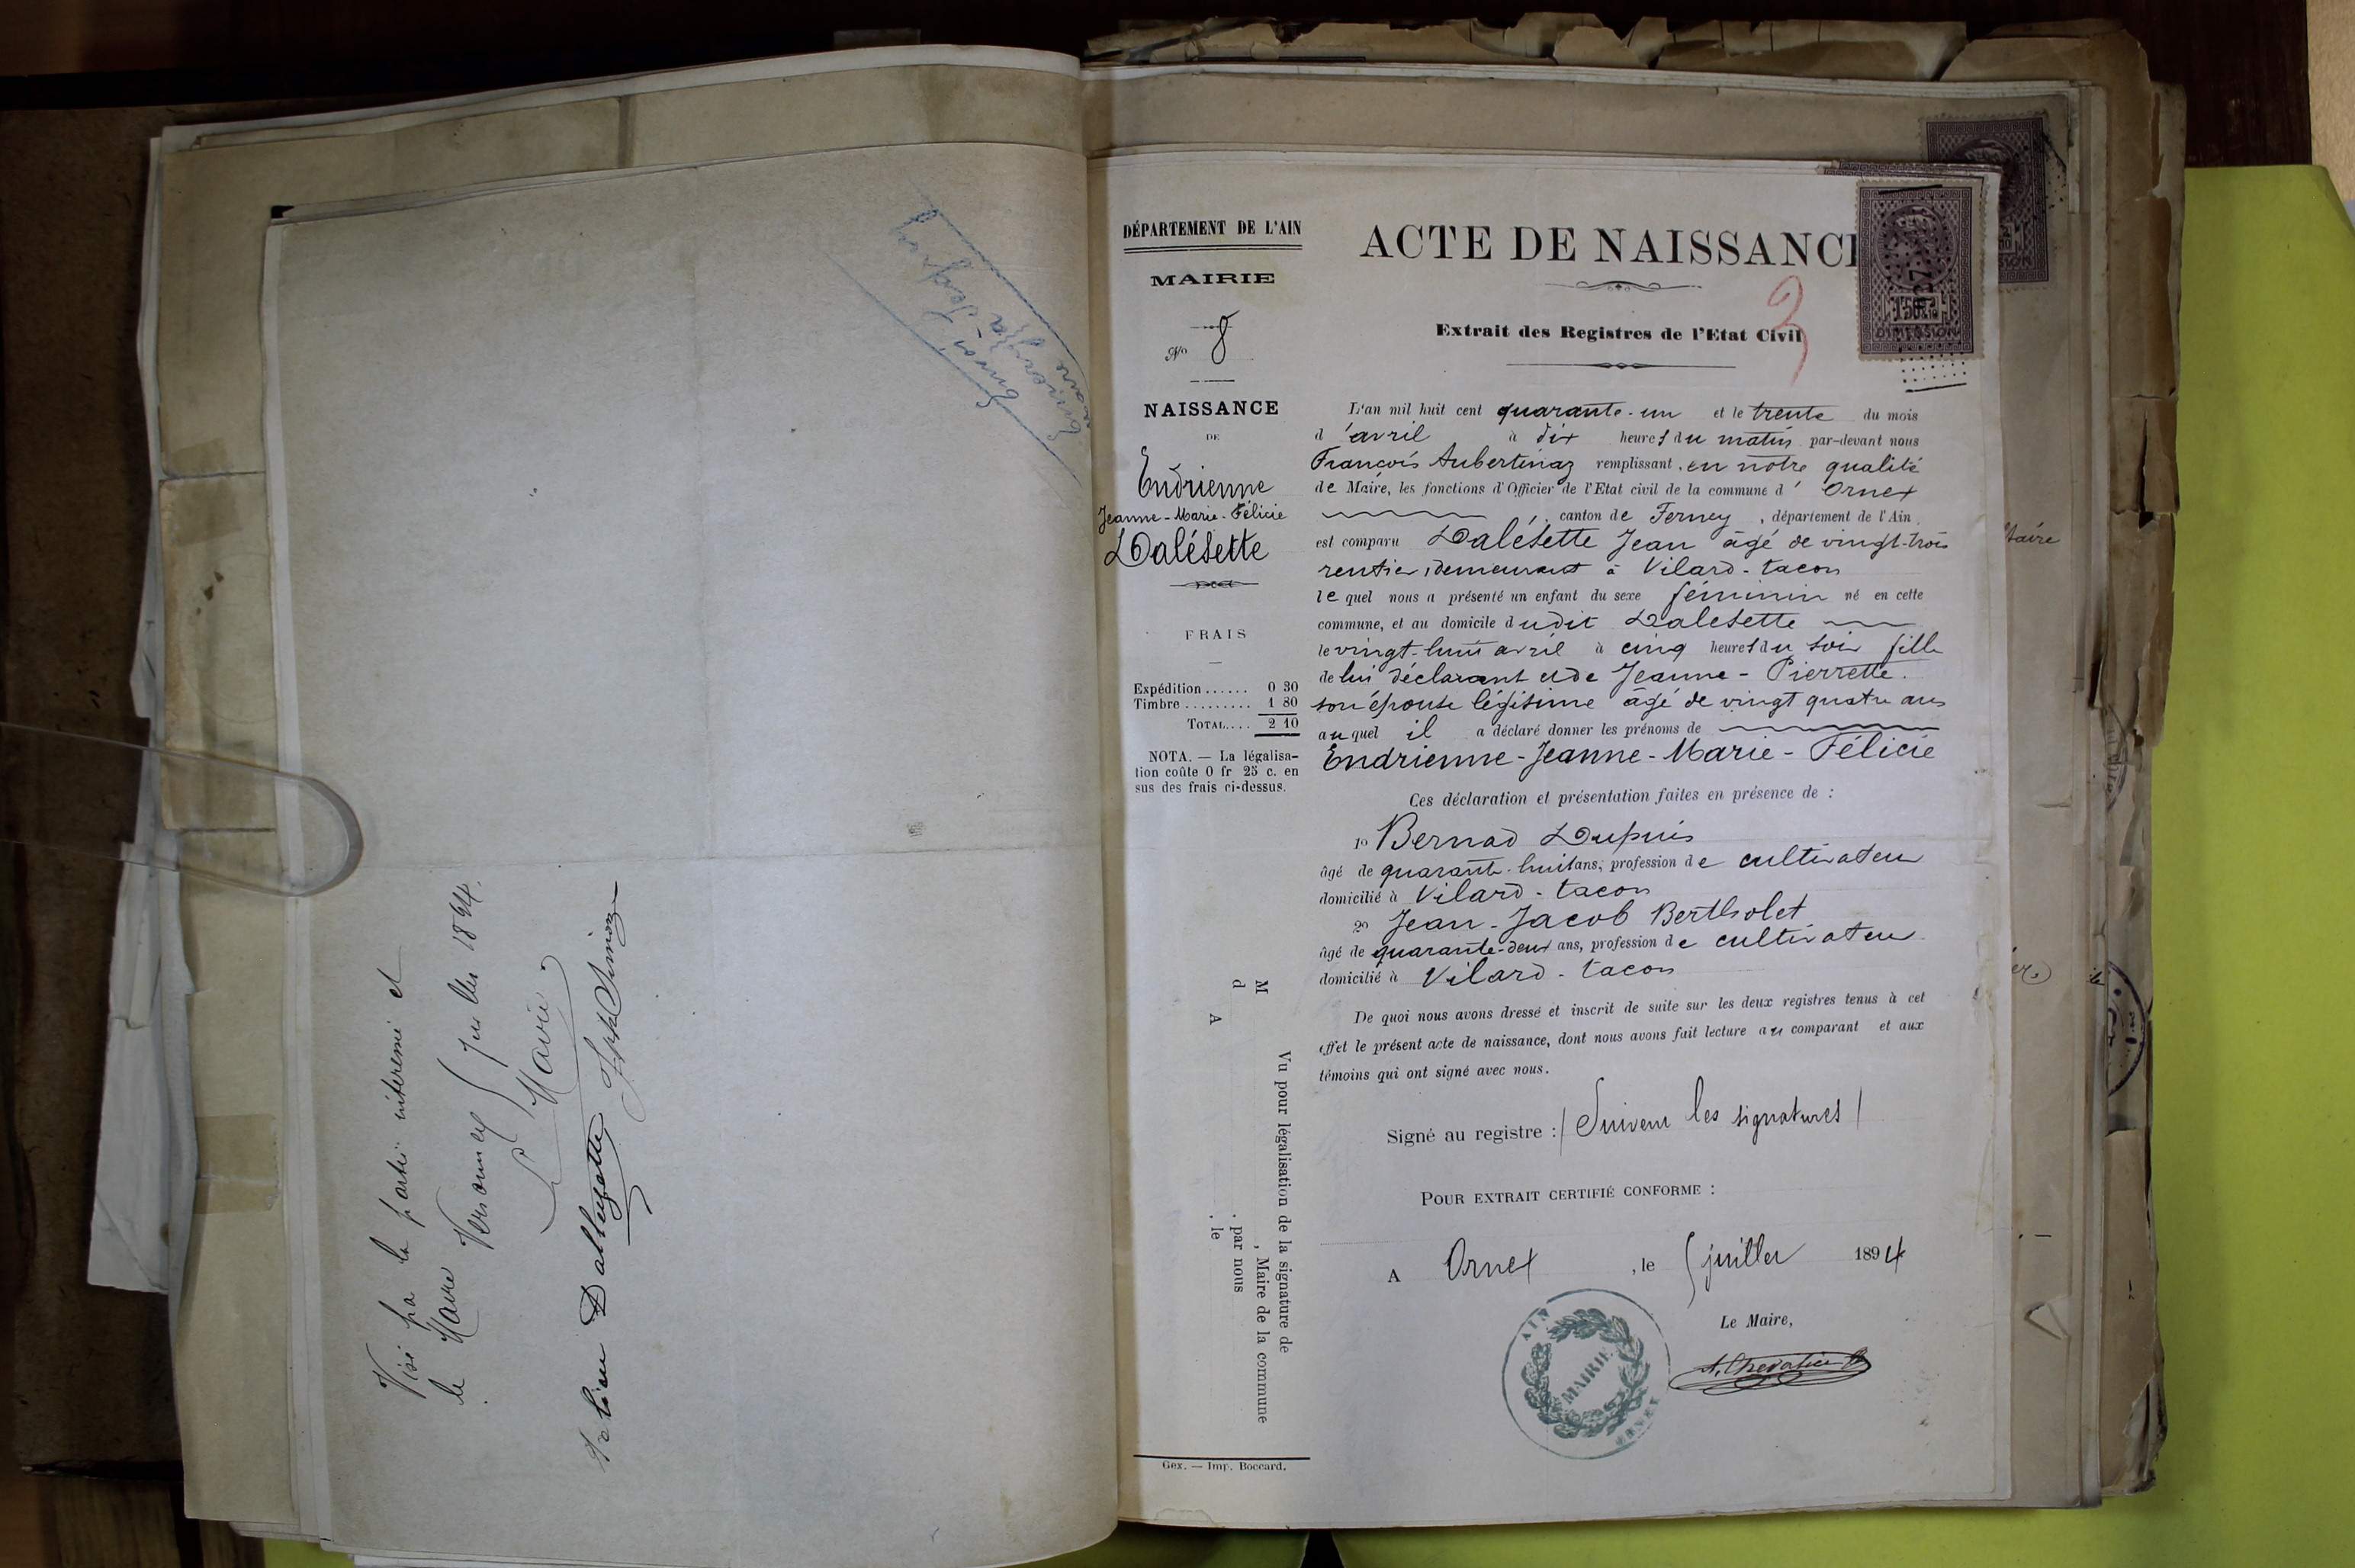 Visé par la partie intéressé et
le Maire
Versonnex 5 Juillet 1894
Le Maire
DÉPARTEMENT DE L'AIN
MAIRIE
No 8
NAISSANCE
DE
Endrienne
Jeanne-Marie-Félicie
Dalésette
FRAIS
Expédition ...... 0 30
Timbre ......... 1 80
TOTAL.... 2 10
NOTA. — La légalisa-
tion coûte 0 fr 25 c. en
sus des frais ci-dessus.
Vu pour légalisation de la signature de
M , Maire de la commune
d . par nous
A . le
Gex. — Imp. Boccard.
ACTE DE NAISSANC
3
Extrait des Registres de l'Etat Civil
L'an mil huit cent quarante-un et le trente du mois
d'avril à dix heures du matin par-devant nous
François Aubertinaz remplissant, en notre qualité
de Maire, les fonctions d'Officier de l'Etat civil de la commune d'Ornex
, canton de Ferney, département de l'Ain,
est comparu Dalésette Jean âgé de vingt-trois
rentier, demeurant à Vilard-tacon
lequel nous a présenté un enfant du sexe féminin né en cette
commune, et au domicile dudit Dalesette
le vingt-huit avril à cinq heures du soir fille
de lui déclarant et de Jeanne-Pierrette.
son épouse légitime âgé de vingt quatre ans
auquel il a déclaré donner les prénoms de
Endrienne-Jeanne-Marie-Félicie
Ces déclaration et présentation faites en présence de :
1o Bernad Dupuis
âgé de quarante-huit ans, profession de cultivateur
domicilié à Vilard-tacon
2o Jean-Jacob Bertholet
âgé de quarante-deux ans, profession de cultivateur
domicilié à Vilard-tacon
De quoi nous avons dressé et inscrit de suite sur les deux registres tenus à cet
effet le présent acte de naissance, dont nous avons fait lecture au comparant et aux
témoins qui ont signé avec nous.
Signé au registre : / Suivent les signatures /
POUR EXTRAIT CERTIFIÉ CONFORME :
A Ornex, le 5 juillet 1894
Le Maire,
A. Chevalier
AIN
MAIRIE
ORNEX
DIMENSION